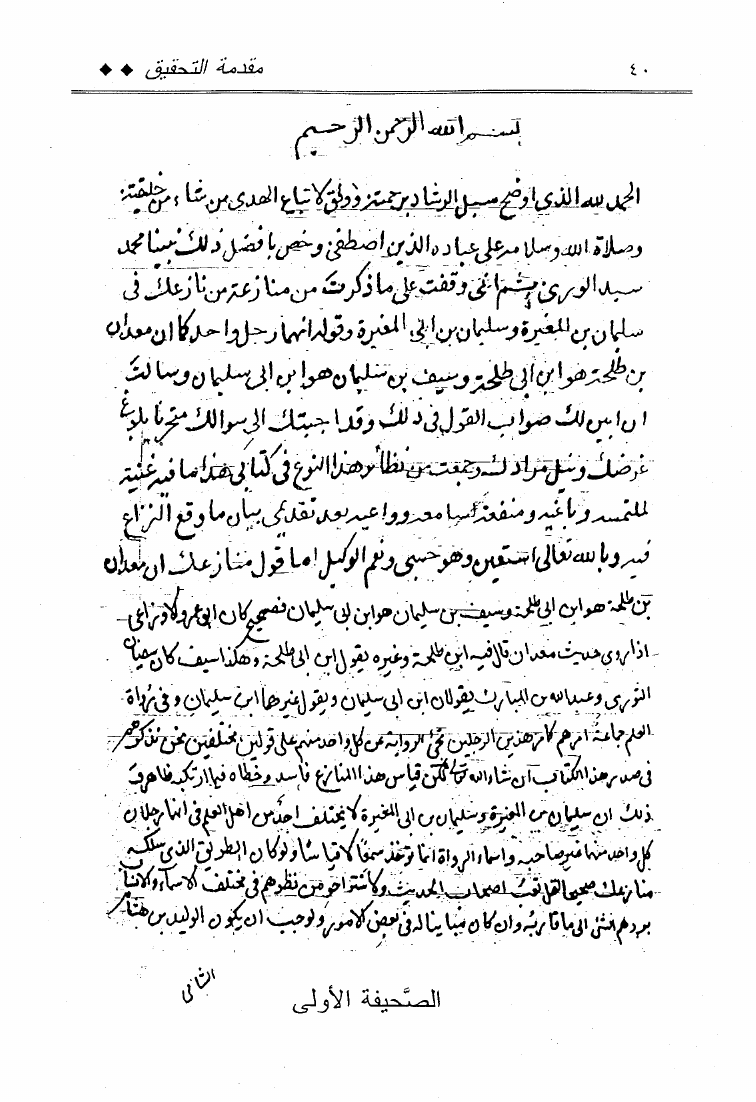 ٤٠ مقدمة التحقيق
بسم الله الرحمن الرحيم
الحمد لله الذي اوضح سبيل الرشاد برحمته ووفق لاتباع الهدى من شاء من خليقته
وصلاة الله وسلامه على عباده الذين اصطفى وخص بافضل ذلك نبينا محمد
سيد الورى ثم انني وقفت على ما ذكرت من منازعة من نازعك في
سلمان بن المغيرة وسلمان بن ابي المغيرة وقوله انهما رجل واحد كما ان معدان
بن طلحة هو ابن ابي طلحة وسيف بن سليمان هو ابن ابي سليمان وسالت
ان ابين لك صواب القول في ذلك وقد اجبتك الى سوالك متحريا بلوغ
غرضك ونيل مرادك وجمعت من نظائر هذا النوع في كتابي هذا ما فيه غنية
للملتمسه وباغيه ومنفعة واعيه بعد تقديمي بيان ما وقع النزاع
فيه وبالله تعالى استعين وهو حسبي ونعم الوكيل اما قول منازعك ان معدان
بن طلحة هو ابن ابي طلحة وسيف بن سليمان هو ابن ابي سليمان فصحيح كان ابو عمرو الاوزاعي
اذا روى حديث معدان قال فيه ابن طلحة وغيره يقول ابن ابي طلحة وهكذا سيف كان سفيان
الثوري وعبدالله بن المبارك يقولان ابن ابي سليمان ويقول غيرهما ابن سليمان وفي رواة
العلم جماعة امرهم كامر هذين الرجلين تجئ الرواية عن كل واحد منهم على قولين مختلفين نحن نذكرهم
في صدر هذا الكتاب ان شاء الله تعالى لكن قياس هذا المنازع فاسد وخطاه فيما ارتكبه ظاهر
ذلك ان سلمان بن المغيرة وسلمان بن ابي المغيرة لا يختلف احد من اهل العلم في انهما رجلان
كل واحد منهما غير صاحبه واسماء الرواة انما توخذ سمعا لا قياسا ولو كان الطريق الذي سلكه
منازعك صحيحا لقل تعب اصحاب الحديث ولاستراحوا من نظرهم في مختلف الاسماء والانساب
بردهم الشئ الى ما قاربه وان كان مباينا له في بعض الامور ولوجب ان يكون الوليد بن هشام
الثاني
الصَّحيفة الأولى